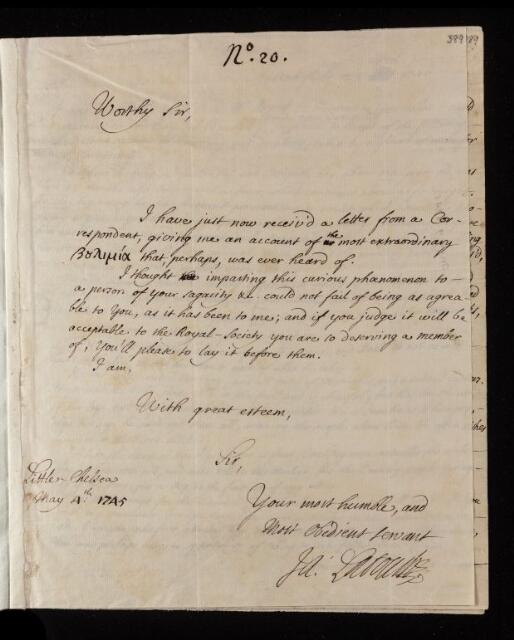 389
Nº. 20.
Worthy Sir,
I have just now receiv'd a letter from a Cor-
respondent, giving me an account of the most extraordinary
Βολιμία that, perhaps, was ever heard of.
I thought imparting this curious phænomenon to
a person of your sagacity &c. could not fail of being as agrea-
ble to You, as it has been to me; and if you judge it will be
acceptable to the Royal-Society you are so deserving a member
of, You'll please to lay it before them.
I am,
With great esteem,
Sir,
Little Chelsea
May 4th. 1745
Your most humble, and
Most Obedient servant
Ja: